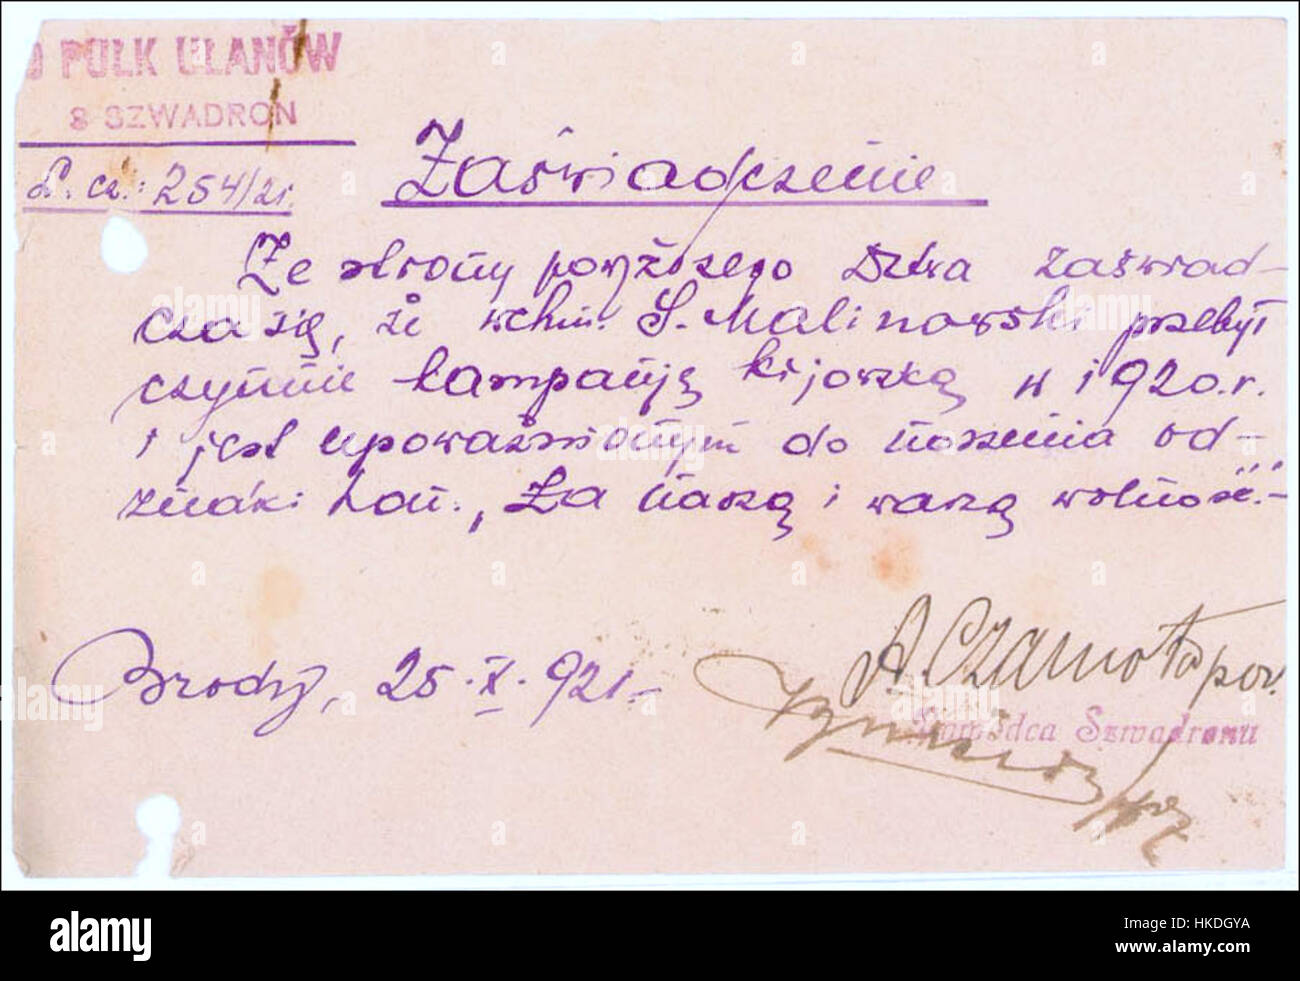 0 PUŁK UŁANÓW
8 SZWADRON
L. cz.: 254/21.
Zaświadczenie
Ze strony powyższego Dztwa zaświad-
cza się, że wchm. S. Malinowski przebył
czynnie kampanję kijowską w 1920.r.
i jest upoważnionym do noszenia od-
znaki hon., Za naszą i waszą wolność".-
Brody, 25.X.921.-
A. Czarnota por.
Dowódca Szwadronu
alamy
alamy
alamy
alamy
Image ID: HKDGYA
www.alamy.com